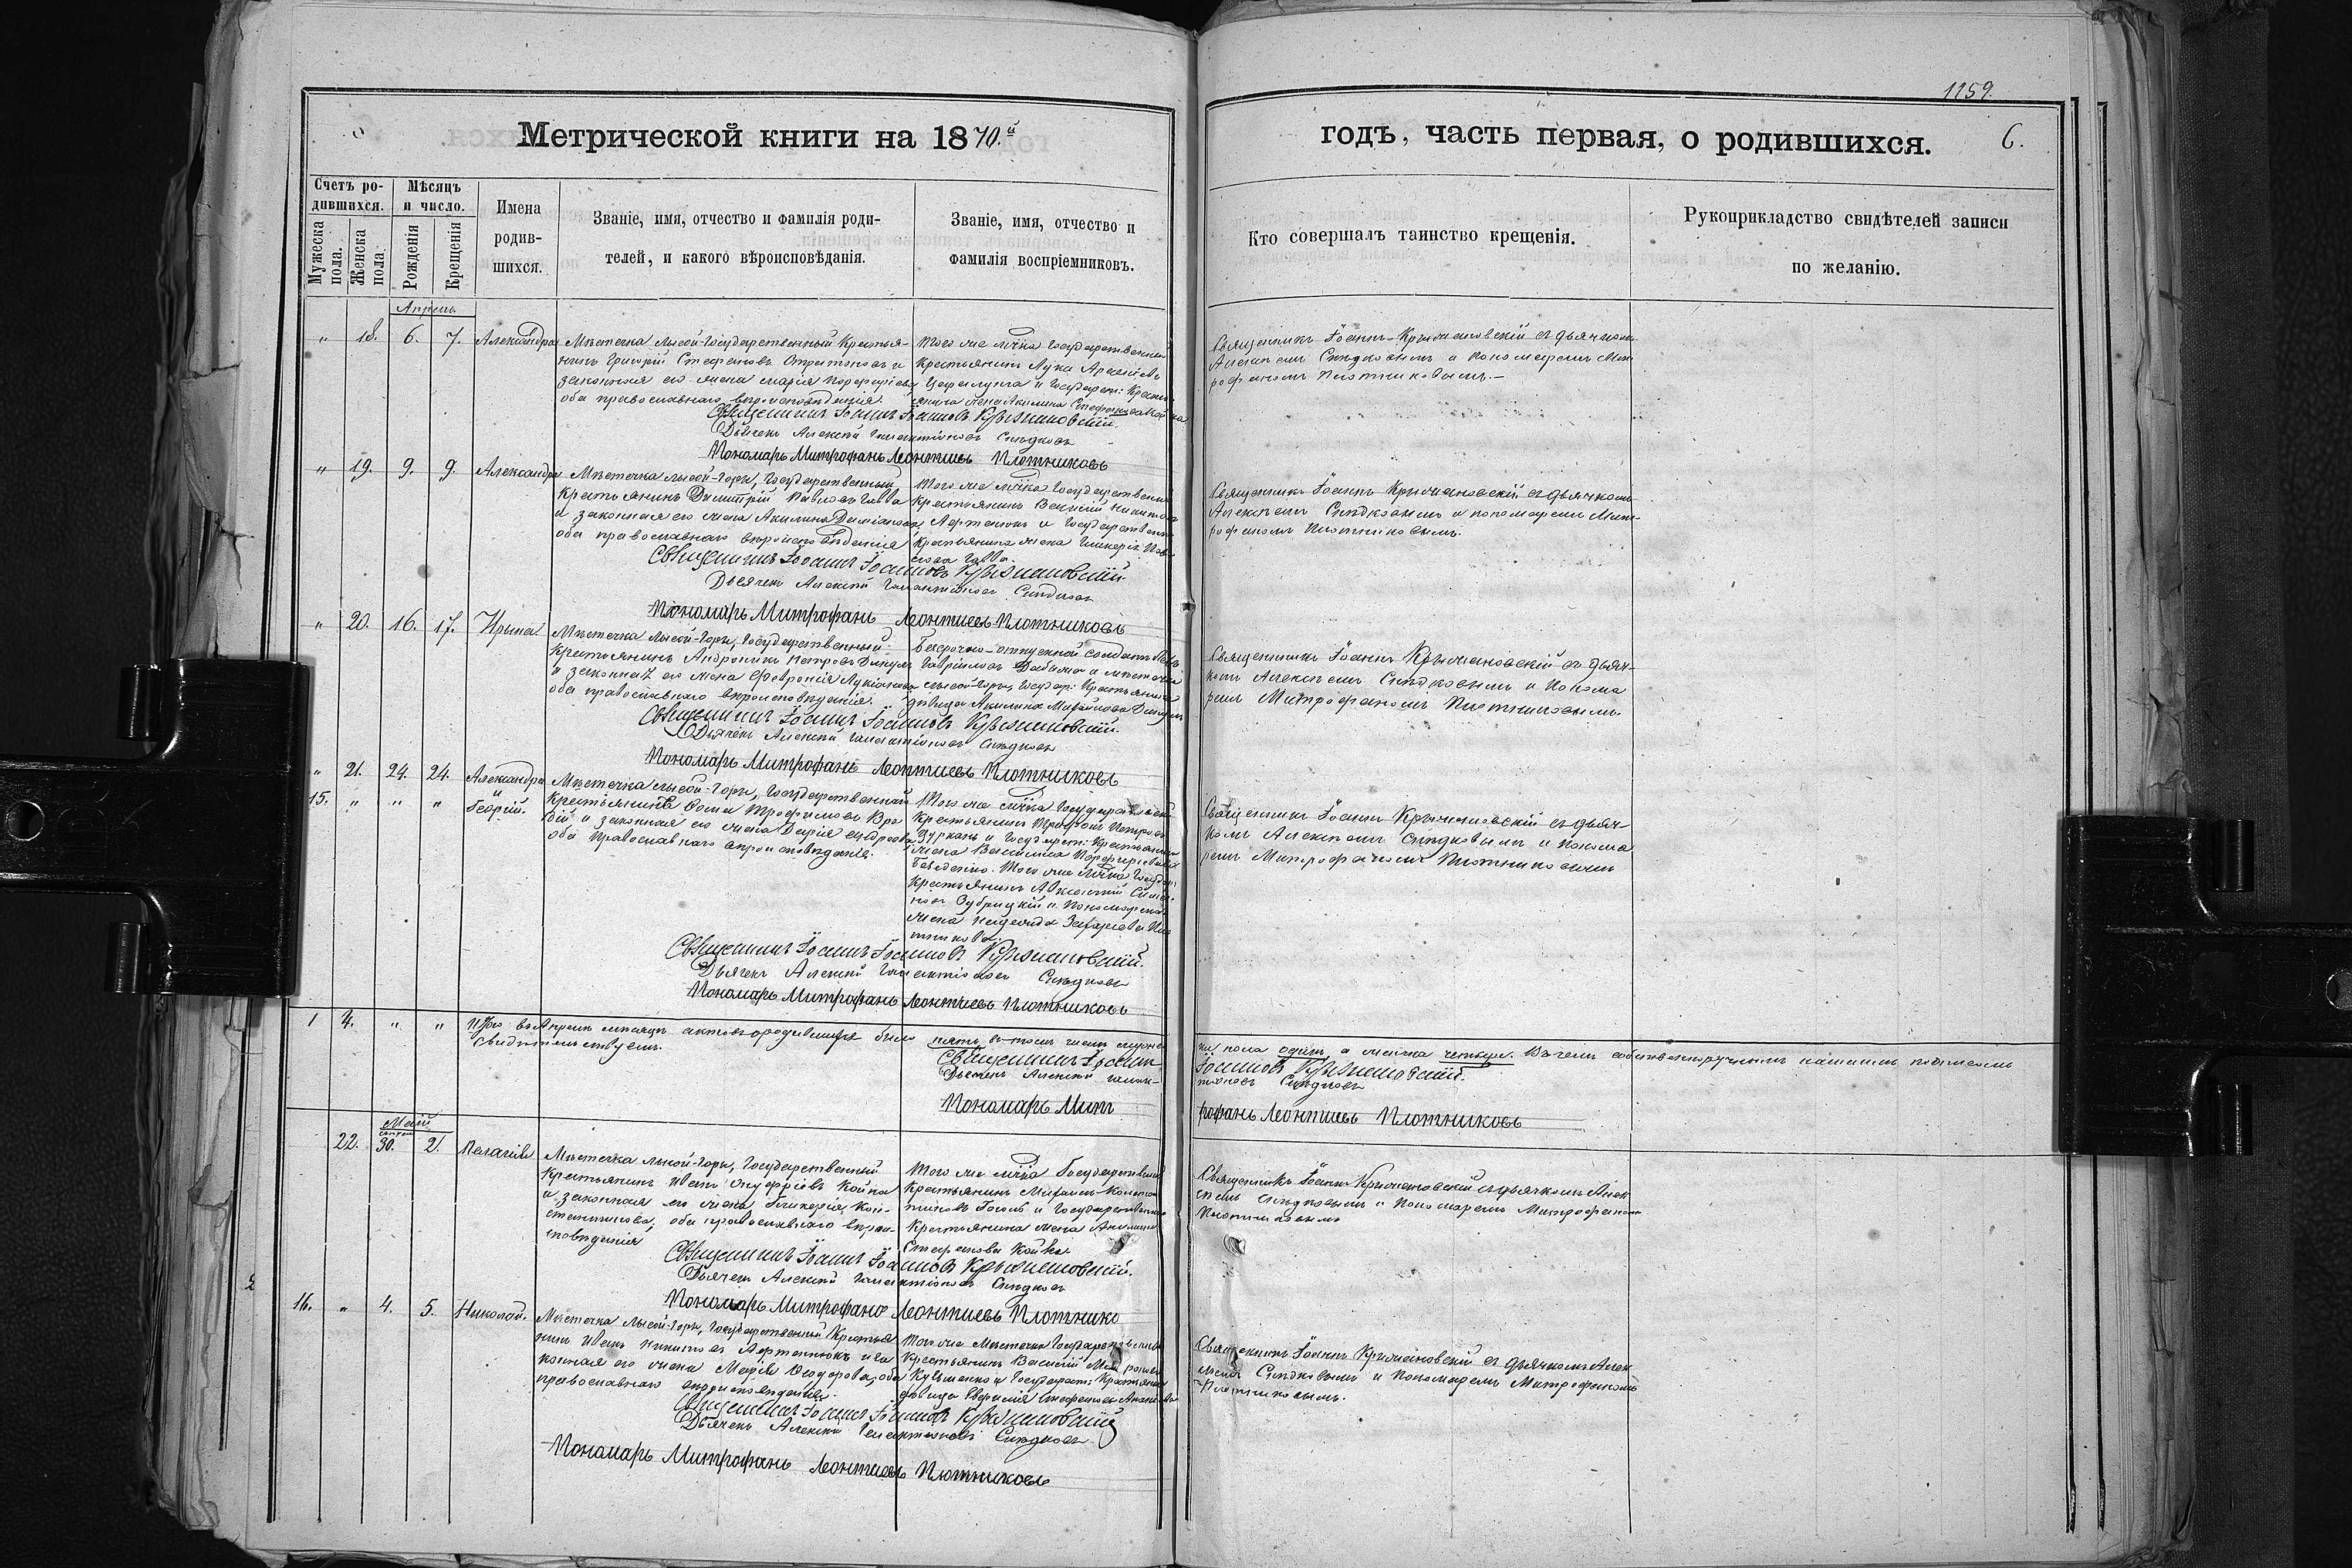 1159.
Метрической книги на 1870.й
годъ, часть первая, о родившихся. 6.
Счетъ родившихся.
Мѣсяцъ и число.
Имена родившихся.
Званіе, имя, отчество и фамилія родителей, и какого вѣроисповѣданія.
Званіе, имя, отчество и фамилія воспріемниковъ.
Кто совершалъ таинство крещенія.
Рукоприкладство свидѣтелей записи по желанію.
Мужеска пола.
Женска пола
Рожденія
Крещенія
Апрель
" 18. 6. 7. Александра
Мѣстечка Лысой-Горы государственный крестья-
нинъ Григорій Стефановъ и
законная его жена Марія Порфиріева
оба православнаго вѣроисповѣданія.
Того же мѣчка государственный
крестьянинъ Лука
и государст: крестья-
нина жена Акилина Стефанова
Священникъ Іоаннъ Крыжановскій съ дьячкомъ
Алексѣемъ Сѣдковымъ и пономаремъ Мит-
рофаномъ Плотниковымъ.-
Священникъ Іоаннъ Іоанновъ Крыжановскій.
Дьячекъ Алексѣй Галактіоновъ Сѣдковъ
Пономарь Митрофанъ Леонтиевъ Плотниковъ
" 19. 9. 9. Александра
Мѣстечка Лысой-Горы, государственный
крестьянинъ Димитрій Павловъ
и законная его жена Акилина Даміанова,
оба православнаго вѣроисповѣданія
Того же мѣчка государственный
крестьянинъ Василій Никитовъ
Артенюкъ и государственнаго
крестьянина жена Гликерія
Священникъ Іоаннъ Крыжановскій съ дьячкомъ
Алексѣемъ Сѣдковымъ и пономаремъ Мит-
рофаномъ Плотниковымъ.
Священникъ Іоаннъ Іоанновъ Крыжановскій
Дьячекъ Алексѣй Галактіоновъ Сѣдковъ
Пономарь Митрофанъ Леонтиевъ Плотниковъ
" 20. 16. 17. Ирина
Мѣстечка Лысой-Горы, государственный
крестьянинъ Андроникъ Петровъ
и законная его жена Февронія Лукіанова
оба православнаго вѣроисповѣданія.
Безсрочно-отпускной солдатъ
Гавріиловъ и мѣстечка
Лысой-Горы, государ: крестьянина
дѣвица Акилина Михайлова
Священникъ Іоаннъ Крыжановскій съ дьяч-
комъ Алексѣемъ Сѣдковымъ и понома-
ремъ Митрофаномъ Плотниковымъ.
Священникъ Іоаннъ Іоанновъ Крыжановскій.
Дьячекъ Алексѣй Галактіоновъ Сѣдковъ
Пономарь Митрофанъ Леонтиевъ Плотниковъ
" 21. 24. 24. Александра
15. " " " Георгій.
Мѣстечка Лысой-Горы, государственный
крестьянинъ Ѳома Трофимовъ
и законная его жена Дарія
оба православнаго вѣроисповѣданія.
Того же мѣчка государственный
крестьянинъ
и государст: крестьянина
жена Василиса Порфиріева
Того же мѣчка государ:
крестьянинъ Алексѣй
Зубрицкій и пономарская
жена Захаріева Пло-
тникова.
Священникъ Іоаннъ Крыжановскій съ дьяч-
комъ Алексѣемъ Сѣдковымъ и понома-
ремъ Митрофаномъ Плотниковымъ
Священникъ Іоаннъ Іоанновъ Крыжановскій.
Дьячекъ Алексѣй Галактіоновъ Сѣдковъ
Пономарь Митрофанъ Леонтиевъ Плотниковъ
1 4. " " Что въ Апрелѣ мѣсяцѣ актовъ о родившихся было пять, въ томъ числѣ мужес-
ка пола одинъ, а женска четыре. Въ чемъ собственноручнымъ нашимъ подписомъ
свидѣтельствуемъ.
Священникъ Іоаннъ Іоанновъ Крыжановскій.
Дьячекъ Алексѣй Галак-тіоновъ Сѣдковъ
Пономарь Митрофанъ Леонтиевъ Плотниковъ
Маій
22. 30. 2. Пелагія
Мѣстечка Лысой-Горы, государственный
крестьянинъ Иванъ Онуфріевъ Койка
и законная его жена Гликерія Кон-
стантинова, оба православнаго вѣрои-
сповѣданія
Того же мѣчка государственный
крестьянинъ Михаилъ Констан-
тиновъ Гоголь и государственнаго
крестьянина жена Акилина
Стефанова Койка.
Священникъ Іоаннъ Крыжановскій съ дьячкомъ Алек-
сѣемъ Сѣдковымъ и пономаремъ Митрофаномъ
Плотниковымъ
Священникъ Іоаннъ Іоанновъ Крыжановскій.
Дьячекъ Алексѣй Галактіоновъ Сѣдковъ
Пономарь Митрофанъ Леонтиевъ Плотнико
16. " 4. 5. Николай.
Мѣстечка Лысой-Горы, государственный крестья-
нинъ Иванъ Никитовъ Артенюкъ и за-
конная его жена Марія Ѳеодорова, оба
православнаго вѣроисповѣданія.
Того же мѣстечка государственный
крестьянинъ Василій
Кузьменко и государст: крестьянина
дѣвица Евфимія Стефанова
Священникъ Іоаннъ Крыжановскій съ дьячкомъ Алек-
сѣемъ Сѣдковымъ и пономаремъ Митрофаномъ
Плотниковымъ.
Священникъ Іоаннъ Іоанновъ Крыжановскій
Дьячекъ Алексѣй Галактіоновъ Сѣдковъ
Пономарь Митрофанъ Леонтиевъ Плотниковъ